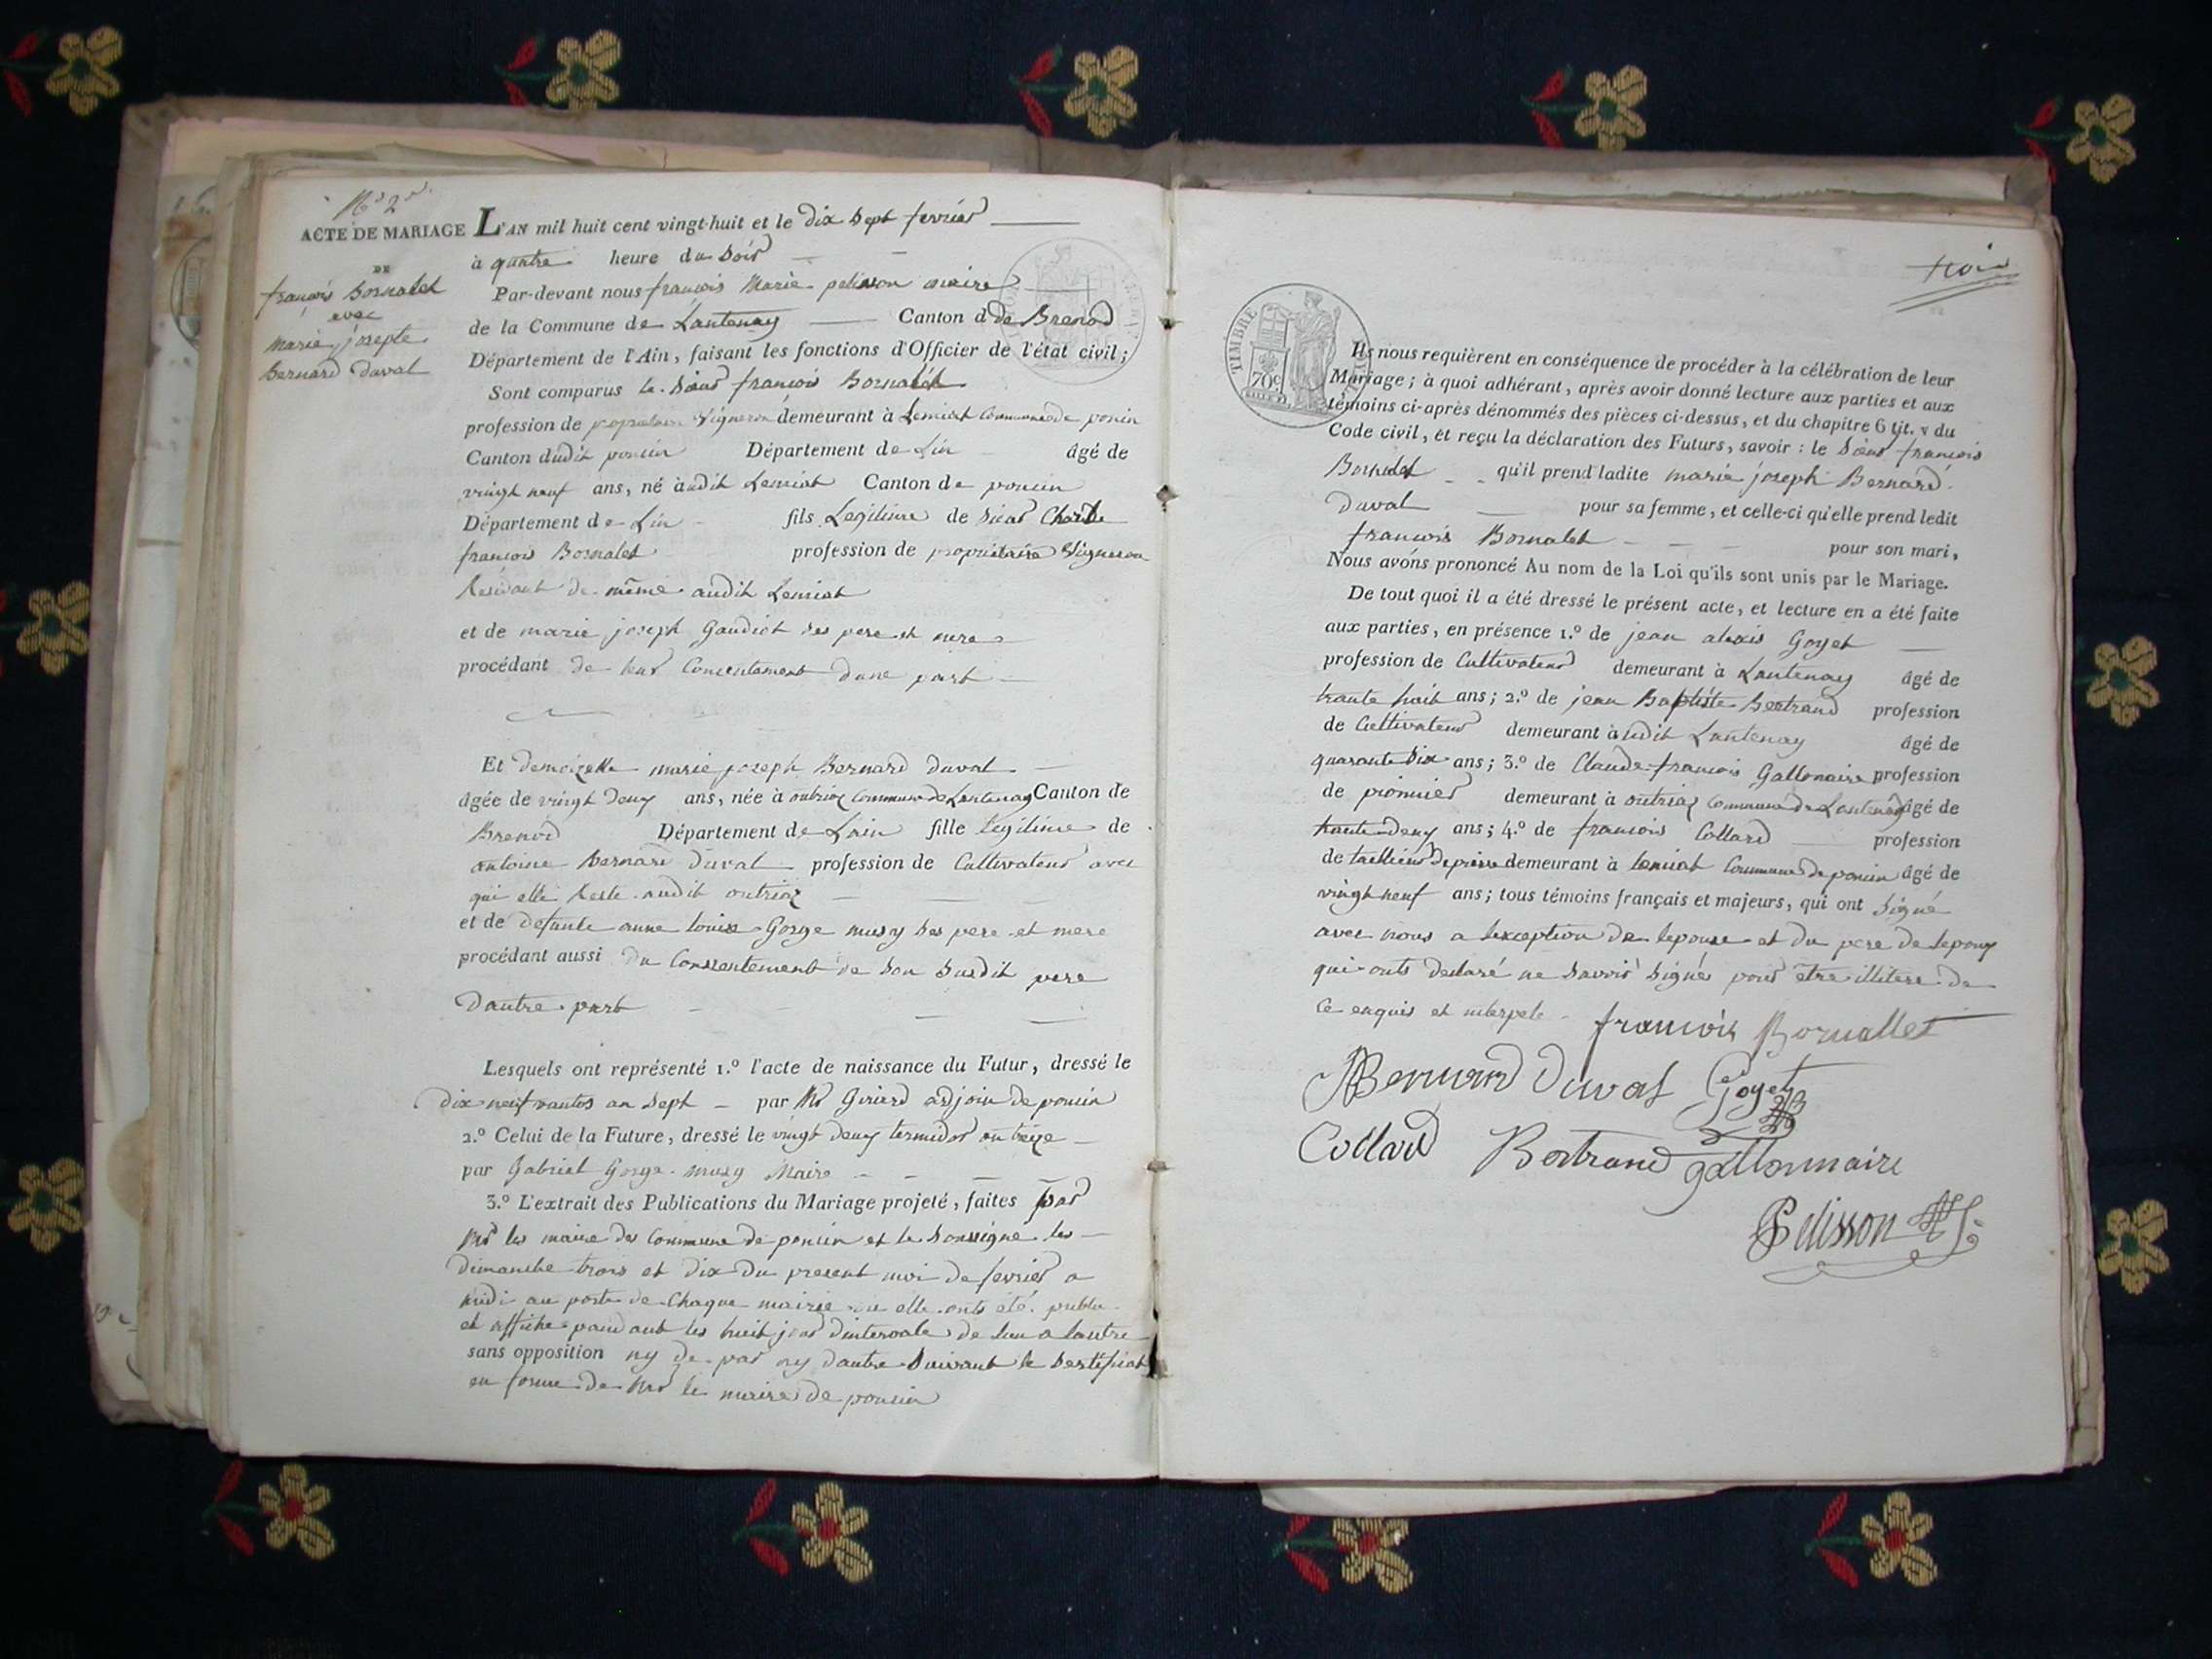 N° 2
ACTE DE MARIAGE
DE
françois Bornalet
avec
marie josepte
Bernard Duval
L'AN mil huit cent vingt-huit et le dix sept fevrier
à quatre heure du Soir
Par-devant nous françois Marie pelisson maire
de la Commune de Lantenay Canton d de Brenod
Département de l'Ain, faisant les fonctions d'Officier de l'état civil;
Sont comparus le Sieur françois Bornalet
profession de propriétaire Vigneron demeurant à Lemiat Commune de poncin
Canton dudit poncin Département de Lin âgé de
vingt neuf ans, né audit Lemiat Canton de poncin
Département de Lin fils Legitime de Sieur Charle
françois Bornalet profession de propriétaire Vigneron
Residant de même audit Lemiat
et de marie joseph Gaudiot ses pere et mere
procédant de leur Consentement dune part
Et demoizelle marie joseph Bernard Duval
âgée de vingt deux ans, née à outriaz Commune de Lantenay Canton de
Brenod Département de Lain fille legitime de
antoine Bernard Duval profession de Cultivateur avec
qui elle Reste audit outriaz
et de defunte anne louise Gorge musy ses pere et mere
procédant aussi du Consentement de Son Susdit pere
Dautre part
Lesquels ont représenté 1.° l'acte de naissance du Futur, dressé le
dix neuf vantos an sept par Mr Girard adjoin de poncin
2.° Celui de la Future, dressé le vingt deux termidor an treize
par Gabriel Gorge musy Maire
3.° L'extrait des Publications du Mariage projeté, faites par
Mr les maire des Commune de poncin et le Soussigné les
dimanche trois et dix du present moi de fevrier a
midi au porte de Chaque mairie ou elle onts été publie
et affiche pandant les huit jour dintervale de lun a lautre
sans opposition ny de par ny dautre Suivant le Sertificat
en forme de Mr le maire de poncin
trois
TIMBRE
70c
Ils nous requièrent en conséquence de procéder à la célébration de leur
Mariage; à quoi adhérant, après avoir donné lecture aux parties et aux
témoins ci-après dénommés des pièces ci-dessus, et du chapitre 6 tit. v du
Code civil, et reçu la déclaration des Futurs, savoir: le Sieur françois
Bornalet qu'il prend ladite marie joseph Bernard
Duval pour sa femme, et celle-ci qu'elle prend ledit
françois Bornalet pour son mari,
Nous avons prononcé Au nom de la Loi qu'ils sont unis par le Mariage.
De tout quoi il a été dressé le présent acte, et lecture en a été faite
aux parties, en présence 1.° de jean alexis Goyet
profession de Cultivateur demeurant à Lantenay âgé de
trante huit ans; 2.° de jean Baptiste Bertrand profession
de Cultivateur demeurant à udit Lantenay âgé de
quarante Six ans; 3.° de Claude françois Gallonaire profession
de pionnier demeurant à outriaz Commune de Lantenay âgé de
trante deux ans; 4.° de françois Collard profession
de tallieur de pierre demeurant à lemiat Commune de poncin âgé de
vingt neuf ans; tous témoins français et majeurs, qui ont Signé
avec nous a lexception de lepouse et du pere de lepoux
qui onts declaré ne Savoir Signer pour être illitere de
Ce enquis et interpele
françois Bornallet
Bernard Duval Goyet
Collard Bertrand gallonnaire
Pelisson